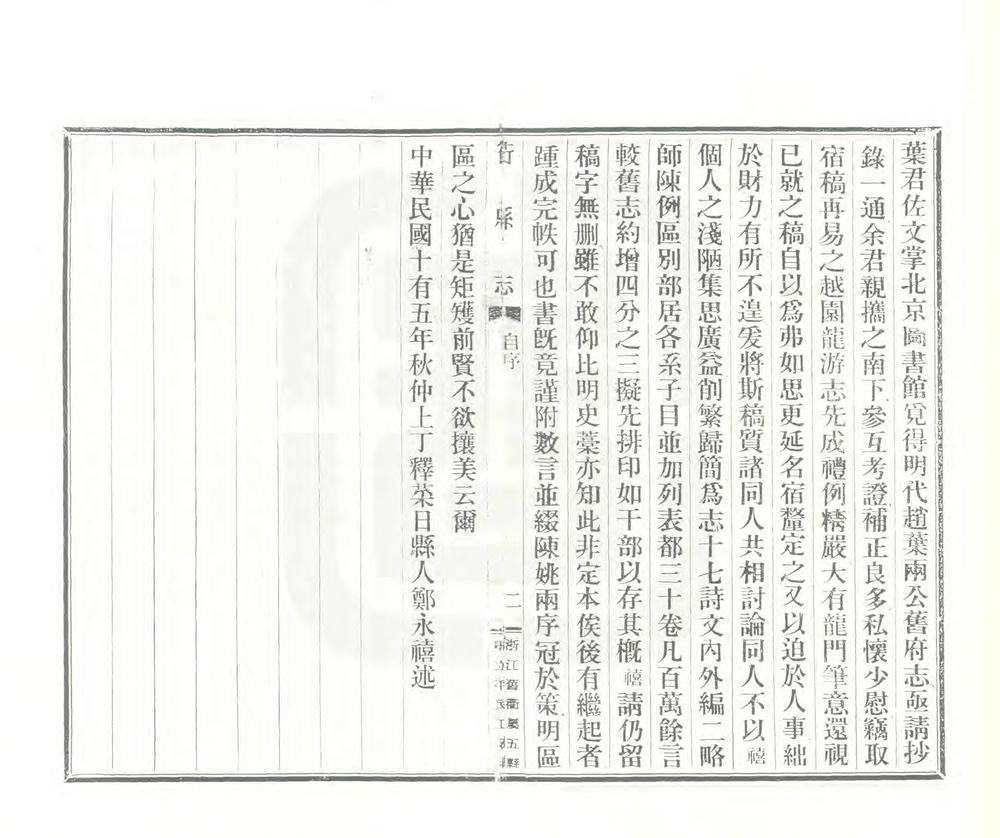 葉君佐文掌北京圖書館覓得明代趙葉兩公舊府志亟請抄
錄一通余君親攜之南下參互考證補正良多私懷少慰竊取
宿稿再易之越園龍游志先成禮例精嚴大有龍門筆意還視
已就之稿自以爲弗如思更延名宿釐定之又以迫於人事絀
於財力有所不遑爰將斯稿質諸同人共相討論同人不以禧
個人之淺陋集思廣益削繁歸簡爲志十七詩文內外編二略
師陳例區別部居各系子目並加列表都三十卷凡百萬餘言
較舊志約增四分之三擬先排印如干部以存其槪禧請仍留
稿字無刪雖不敢仰比明史藁亦知此非定本俟後有繼起者
踵成完帙可也書旣竟謹附數言並綴陳姚兩序冠於策明區
縣志 自序 二 浙江舊衢屬五縣
區之心猶是矩矱前賢不欲攘美云爾
中華民國十有五年秋仲上丁釋菜日縣人鄭永禧述